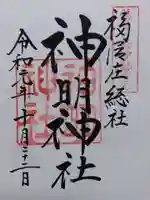 福居庄総社
神明神社
令和元年十月二十二日